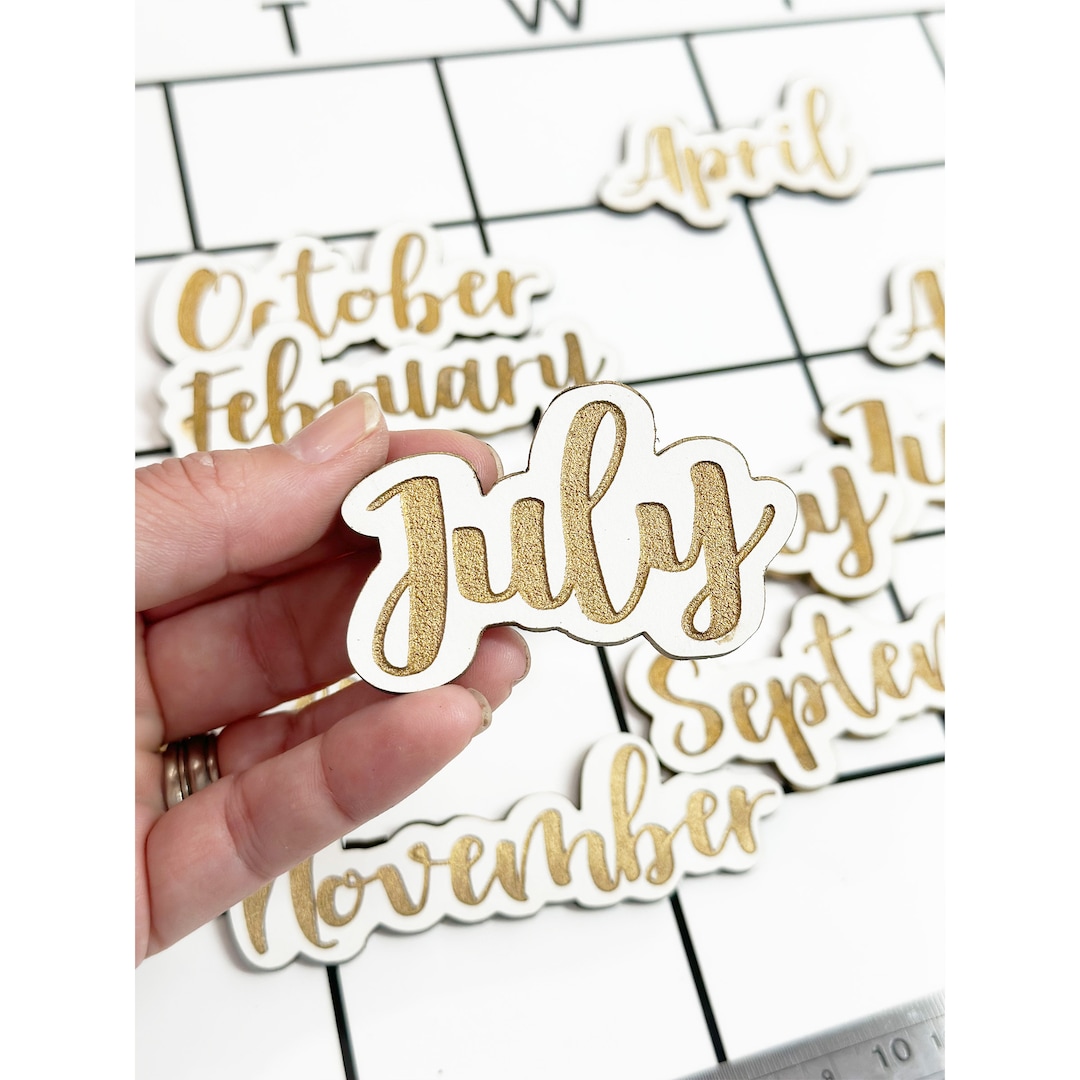 T W
April
October
February
July
Septem
November
10